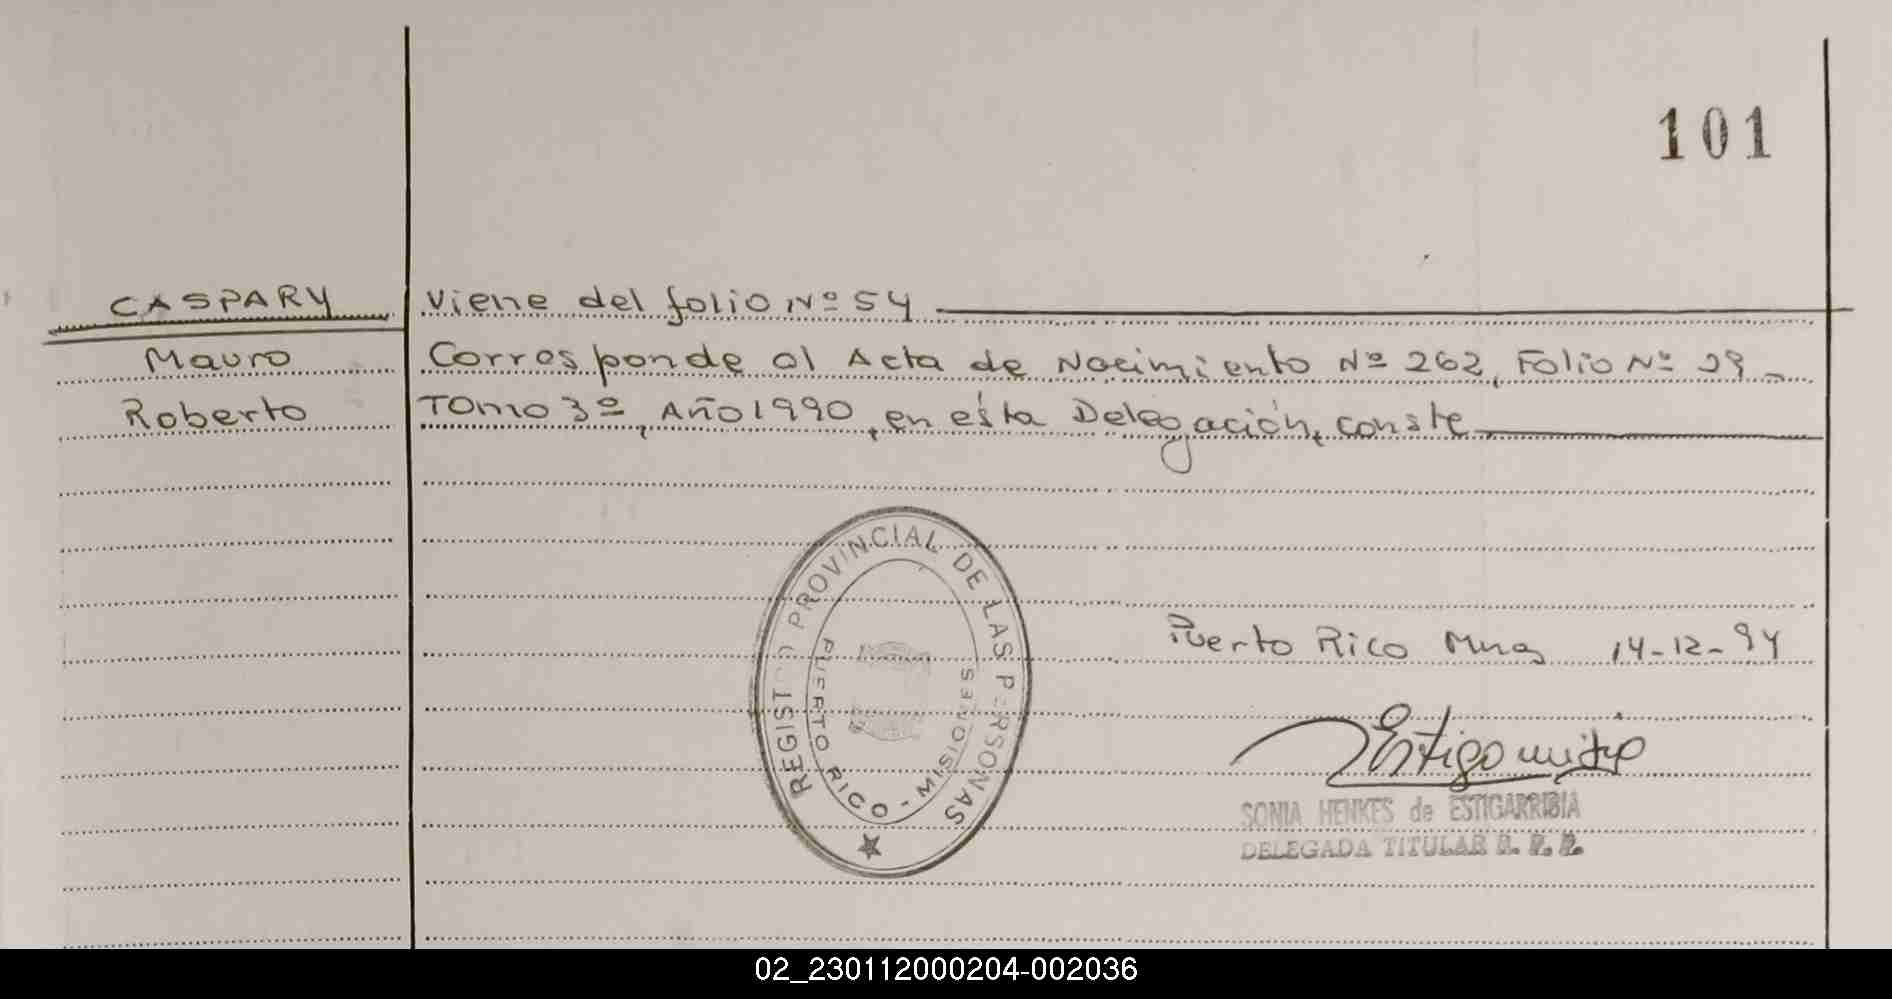 101
CASPARY Viene del folio Nº 54
Mauro Corresponde al Acta de Nacimiento Nº 262, Folio Nº 29
Roberto Tomo 3º, Año 1990, en ésta Delegación, conste
REGISTRO PROVINCIAL DE LAS PERSONAS
PUERTO RICO - MISIONES
Puerto Rico Mnes 14-12-94
SONIA HENKES de ESTIGARRIBIA
DELEGADA TITULAR R. P. P.
02_230112000204-002036